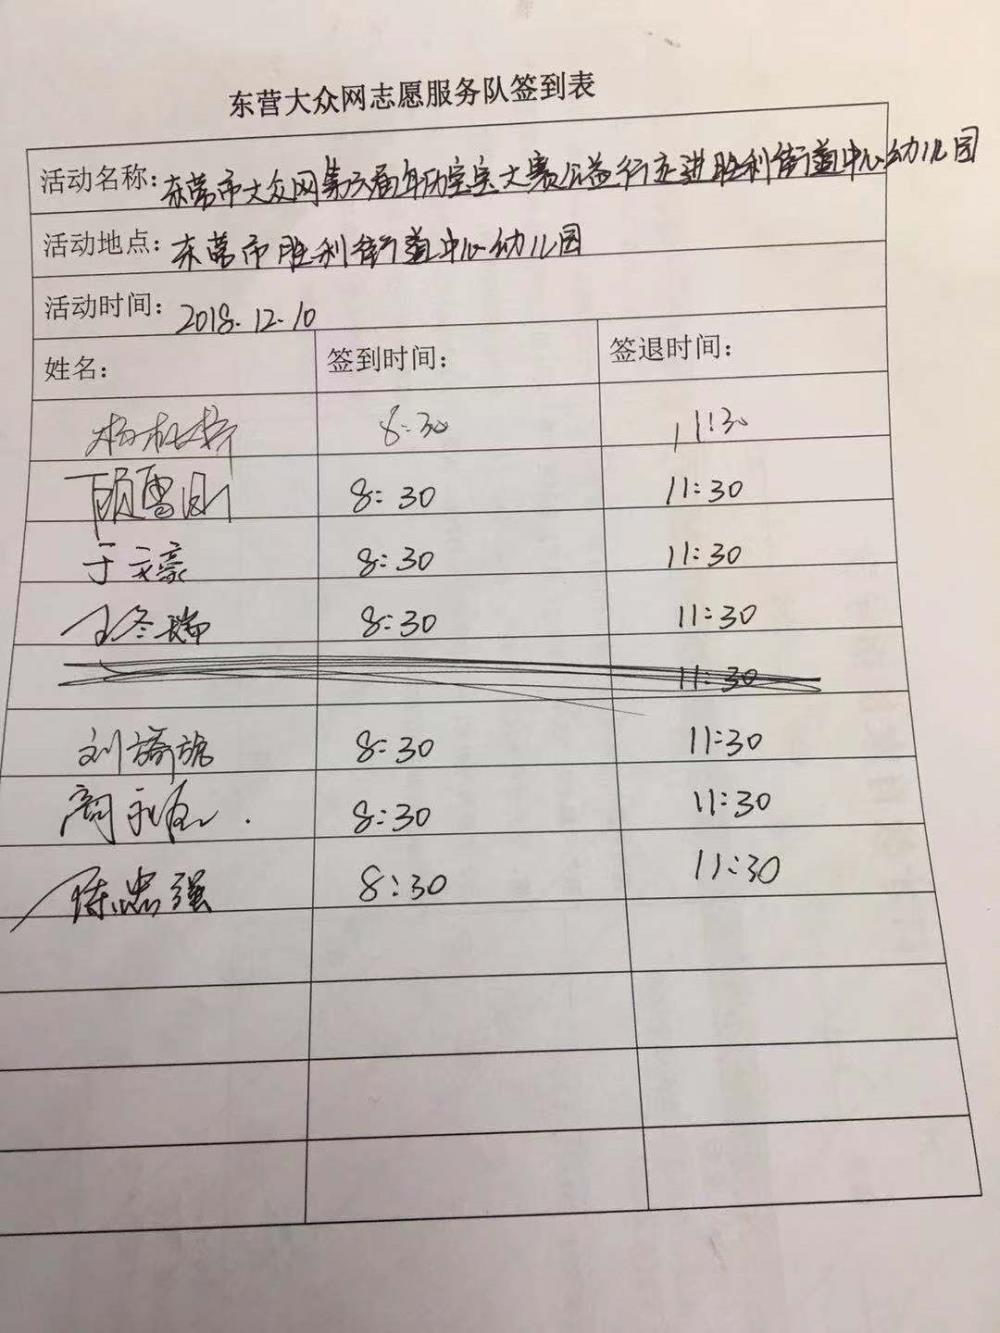 东营大众网志愿服务队签到表
活动名称: 东营市大众网第六届年历宝宝大赛公益行走进胜利街道中心幼儿园
活动地点: 东营市胜利街道中心幼儿园
活动时间: 2018.12.10
姓名: 签到时间: 签退时间:
8:30 11:30
顾雪刚 8:30 11:30
于文豪 8:30 11:30
王冬瑞 8:30 11:30
11:30
刘 8:30 11:30
8:30 11:30
陈忠强 8:30 11:30